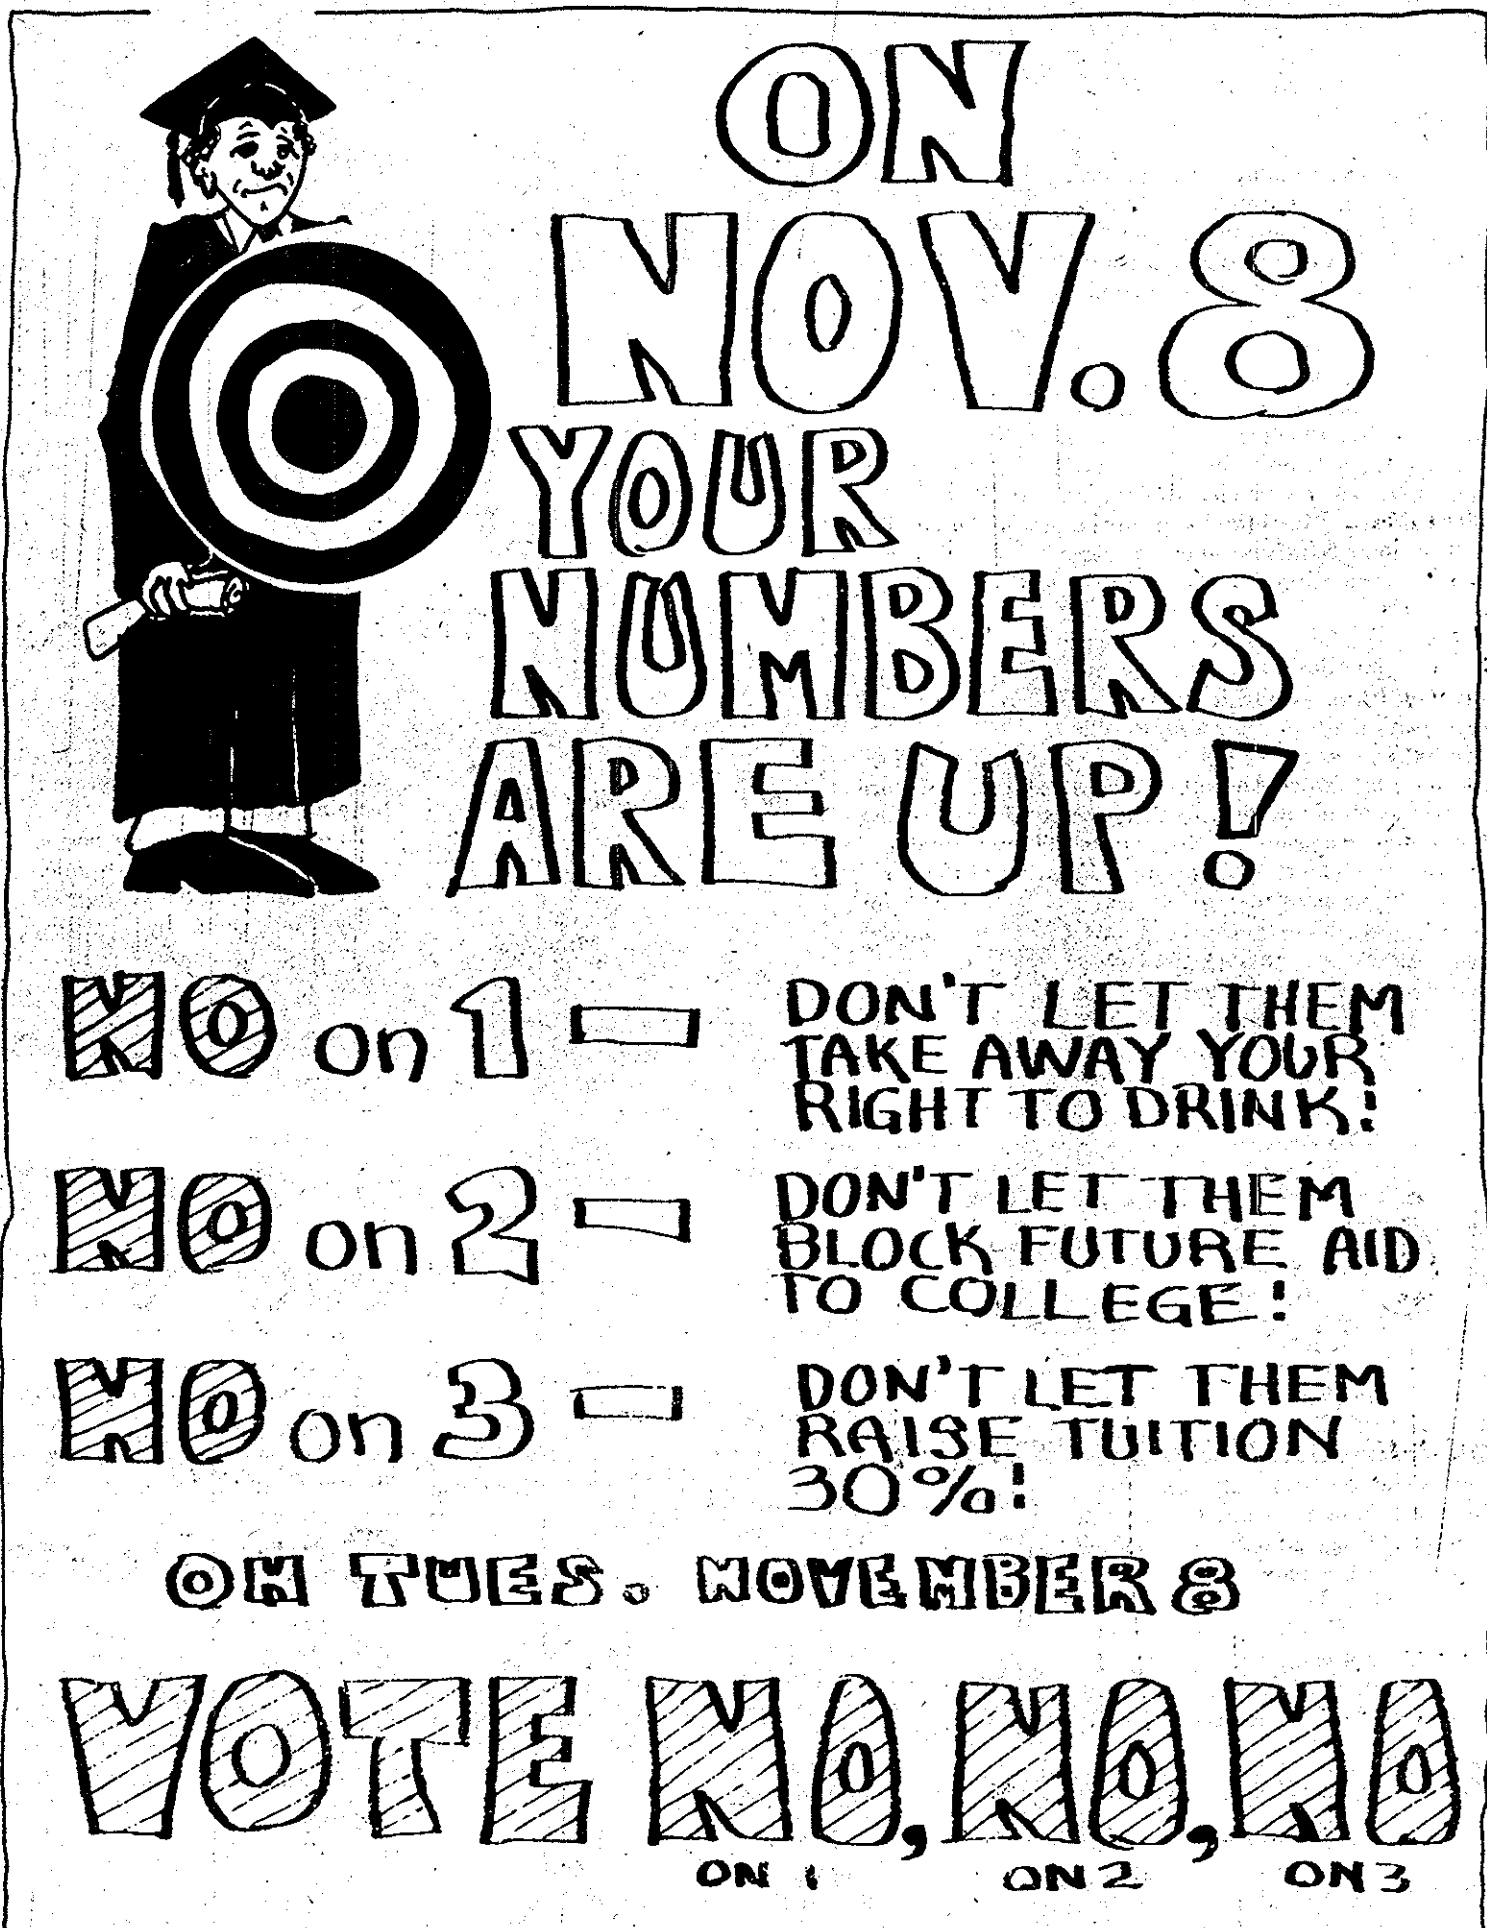 ON
NOV. 8
YOUR
NUMBERS
ARE UP!
NO on 1 — DON'T LET THEM
TAKE AWAY YOUR
RIGHT TO DRINK!
NO on 2 — DON'T LET THEM
BLOCK FUTURE AID
TO COLLEGE!
NO on 3 — DON'T LET THEM
RAISE TUITION
30%!
ON TUES. NOVEMBER 8
VOTE NO, NO, NO
ON 1 ON 2 ON 3